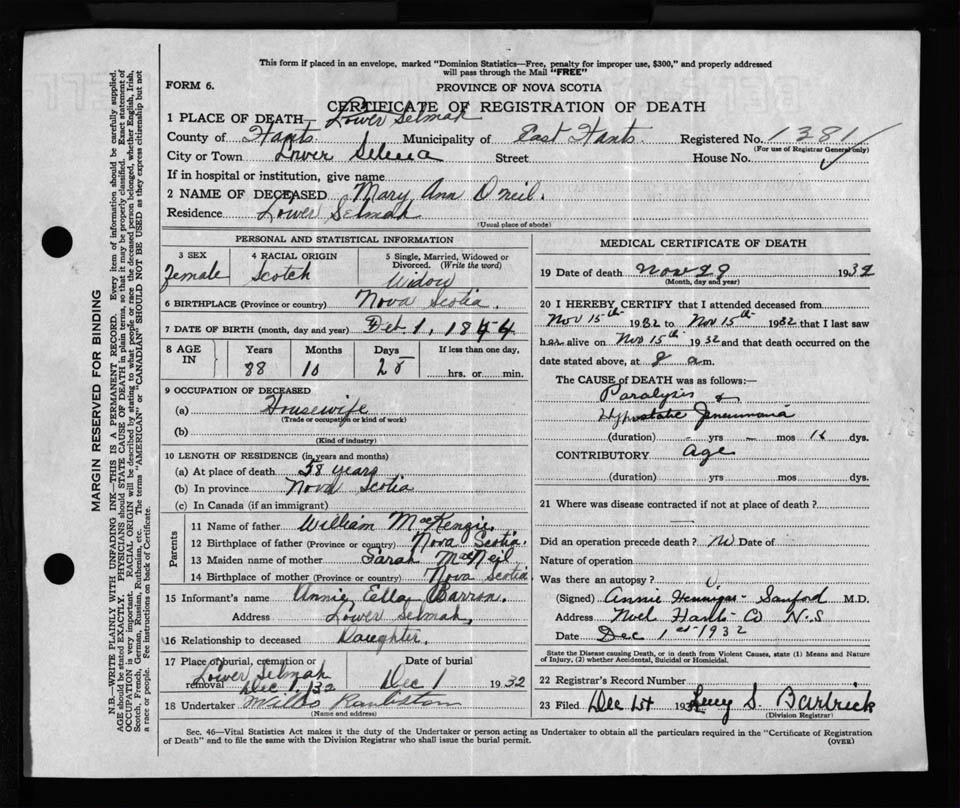 This form if placed in an envelope, marked "Dominion Statistics—Free, penalty for improper use, $300," and properly addressed
will pass through the Mail "FREE"
FORM 6.
PROVINCE OF NOVA SCOTIA
CERTIFICATE OF REGISTRATION OF DEATH
1 PLACE OF DEATH— Lower Selmah
County of Hants Municipality of East Hants Registered No. 1381
(For use of Registrar General only)
City or Town Lower Selma Street House No.
If in hospital or institution, give name
2 NAME OF DECEASED Mary Ann O'neil.
Residence Lower Selmah
(Usual place of abode)
PERSONAL AND STATISTICAL INFORMATION
3 SEX 4 RACIAL ORIGIN 5 Single, Married, Widowed or
Divorced. (Write the word)
Female Scotch Widow
6 BIRTHPLACE (Province or country) Nova Scotia.
7 DATE OF BIRTH (month, day and year) 1, 1844
8 AGE IN Years Months Days If less than one day,
88 10 28 hrs. or min.
9 OCCUPATION OF DECEASED
(a) Housewife
(Trade or occupation or kind of work)
(b)
(Kind of industry)
10 LENGTH OF RESIDENCE (in years and months)
(a) At place of death 58 years
(b) In province Nova Scotia
(c) In Canada (if an immigrant)
Parents
11 Name of father William MacKenzie
12 Birthplace of father (Province or country) Nova Scotia.
13 Maiden name of mother Sarah MacNeil
14 Birthplace of mother (Province or country) Nova Scotia
15 Informant's name Annie Etta Barron.
Address Lower Selmah,
16 Relationship to deceased Daughter.
17 Place of burial, cremation or
removal Lower Selmah Dec 1, 32
Date of burial
Dec 1 1932
18 Undertaker
(Name and address)
MEDICAL CERTIFICATE OF DEATH
19 Date of death Nov 29 1932
(Month, day and year)
20 I HEREBY CERTIFY that I attended deceased from
Nov 15th 1932 to Nov 15th 1932 that I last saw
h er alive on Nov 15th 1932 and that death occurred on the
date stated above, at 8 a.m.
The CAUSE of DEATH was as follows:—
Paralysis &
Hypostatic Pneumonia
(duration) - yrs - mos dys.
CONTRIBUTORY Age
(duration) yrs mos dys.
21 Where was disease contracted if not at place of death?
Did an operation precede death? Date of
Nature of operation
Was there an autopsy?
(Signed) Annie Hennigar-Sanford M.D.
Address Noel Hants Co N.S
Date Dec 1st 1932
State the Disease causing Death, or in death from Violent Causes, state (1) Means and Nature
of Injury, (2) whether Accidental, Suicidal or Homicidal.
22 Registrar's Record Number
23 Filed Dec 1st 193 S.
(Division Registrar)
Sec. 46—Vital Statistics Act makes it the duty of the Undertaker or person acting as Undertaker to obtain all the particulars required in the "Certificate of Registration
of Death" and to file the same with the Division Registrar who shall issue the burial permit.
(OVER)
MARGIN RESERVED FOR BINDING
N.B.—WRITE PLAINLY WITH UNFADING INK—THIS IS A PERMANENT RECORD. Every item of information should be carefully supplied.
AGE should be stated EXACTLY. PHYSICIANS should STATE CAUSE OF DEATH in plain terms, so that it may be properly classified. Exact statement of
OCCUPATION is very important. RACIAL ORIGIN will be described by stating to what people or race the deceased person belonged, whether English, Irish,
Scotch, French, German, Russian, Ruthenian, etc. The terms "AMERICAN" or "CANADIAN" SHOULD NOT BE USED as they express citizenship but not
a race or people. Fee instructions on back of Certificate.